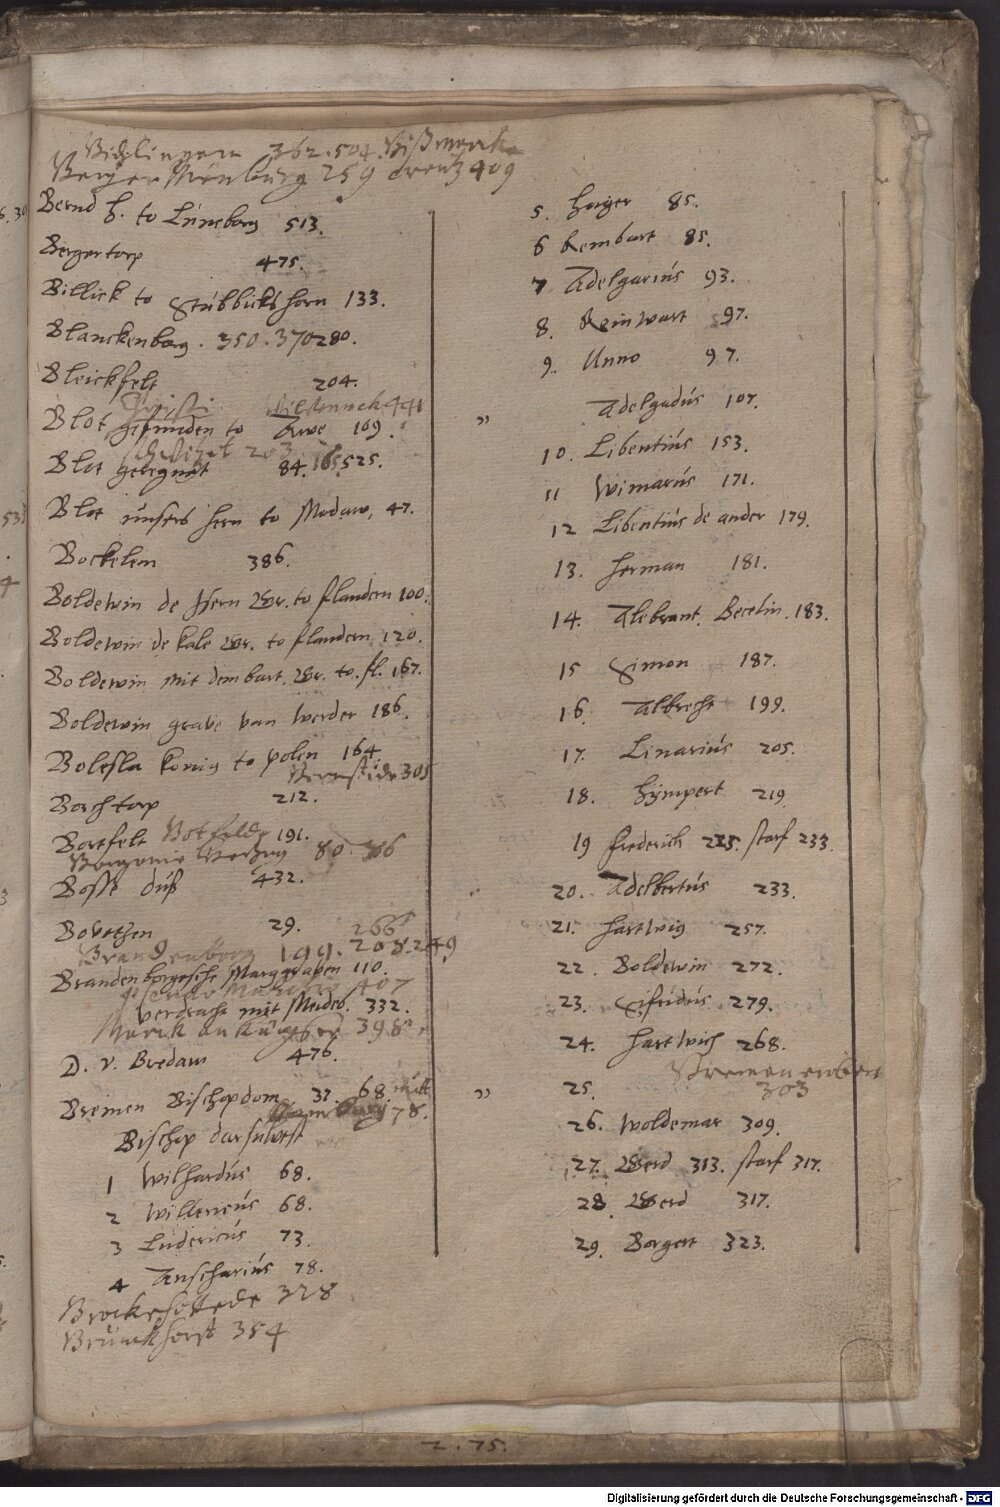 Bidlingen 362. 504. Bißmark
Berger 259 creutz 409
Bernd H. to Lüneborg 513.
Bergertorp 475.
Billick to Stübbickshorn 133.
Blanckenborg. 350. 370 280.
Bleickfelt 204.
Blot gefunden to Awe 109.
Blot geregnet 84. 165. 525.
Blot unsers hern to Modaw, 47.
Bockelem 386.
Boldewin de Isern Gr. to flandern 100.
Boldewin de kale Gr. to flandern 120.
Boldewin mit dem bart. Gr. to. fl. 167.
Boldewin grave van werder 186.
Bolesla konig to polen 164
305
Borchtorp 212.
Bortfelt Botfelde 191.
80
Bosse duß 432.
Bovethen 29. 266
Brandenborg 199. 208. 249
Brandenborgesche Marggraven 110.
407
verdracht mit Meideb. 332.
398
D. v. Bredaw 476.
Bremen Bischopdom 37. 68.
78.
Bischop darsulvest
1 Wilhardús 68.
2 Willericús 68.
3 Lúdericús 73.
4 Anschariús 78.
Brockeshovede 328
Brunckhorst 354
5. Hoger 85.
6 Rembart 85.
7 Adelgariús 93.
8. Reinwart 97.
9. Unno 97.
" Adelgadús 107.
10. Libentiús 153.
11 Wimarús 171.
12 Libentiús de ander 179.
13. Herman 181.
14. Alebrant. Becelin. 183.
15 Simon 187.
16. Albrecht 199.
17. Linariús 205.
18. Hÿmpert 219
19 frederich 225. starf 233.
20. Adelbertús 233.
21. Hartwig 257.
22. Boldewin 272.
23. Sifridús 279.
24. Hartwich 268.
" 25. Bremen
303
26. Woldemar 309.
27. Gerd 313. starf 317.
28. Gerd 317.
29. Borgert 323.
2. 75.
Digitalisierung gefördert durch die Deutsche Forschungsgemeinschaft - DFG